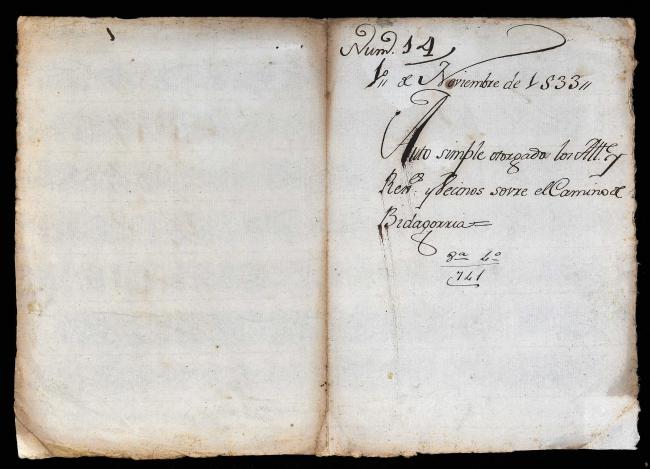 Num. 14
1º,, de Noviembre de 1833,,
Auto simple otorgado los Alt.es y
Rexs. y Vecinos sovre el Camino de
Bidagorria=
8ª 4º
741